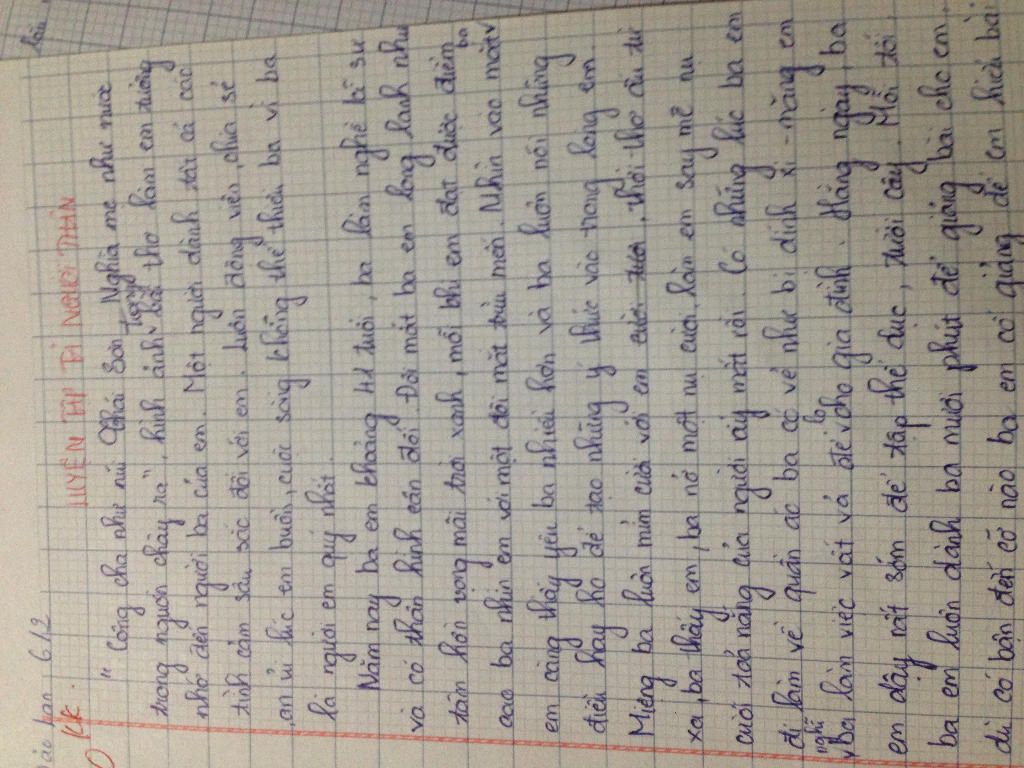 bài
ban 612
LUYỆN TẬP TẢ NGƯỜI THÂN
KK.
" Công cha như núi Thái Sơn Nghĩa mẹ như nước
trong nguồn chảy ra", hình ảnh bài thơ làm em tưởng
nhớ đến người ba của em. Một người dành tất cả các
tình cảm sâu sắc đối với em. Luôn động viên, chia sẻ
,an ủi lúc em buồn, cuộc sống không thể thiếu ba vì ba
là người em quý nhất.
Năm nay ba em khoảng 41 tuổi, ba làm nghề kĩ sư
và có thân hình cân đối. Đôi mắt ba em long lanh như
tâm hồn vọng mãi trời xanh, mỗi khi em đạt được điểm
cao ba nhìn em với một đôi mắt trìu mến. Nhìn vào mắt ba
em càng thấy yêu ba nhiều hơn và ba luôn nói những
điều hay họ để tạo những ý thức vào trong lòng em.
Miệng ba luôn mỉm cười với em cười tươi, thời thơ ấu từ
xa, ba thấy em, ba nở một nụ cười làm em say mê nụ
cười toả nắng của người ấy mất rồi. Có những lúc ba em
đi làm về quần áo ba có vẻ như bị dính xi - măng em
nghĩ Ba làm việc vất vả để lo cho gia đình. Hằng ngày, ba
em dậy rất sớm để tập thể dục, tưới cây. Mỗi tối,
ba em luôn dành ba mươi phút để giảng bài cho em.
dù có bận đến cỡ nào ba em cố giảng để em hiểu bài